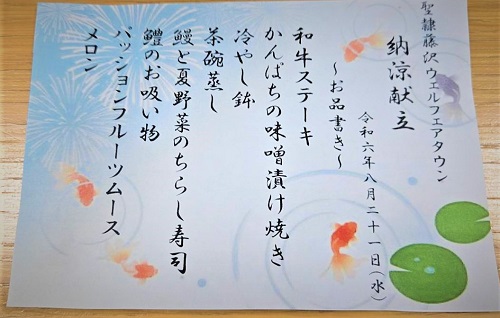 聖隷藤沢ウェルフェアタウン
納涼献立
令和六年八月二十一日(水)
～お品書き～
和牛ステーキ
かんぱちの味噌漬け焼き
冷やし鉢
茶碗蒸し
鰻と夏野菜のちらし寿司
鱧のお吸い物
パッションフルーツムース
メロン